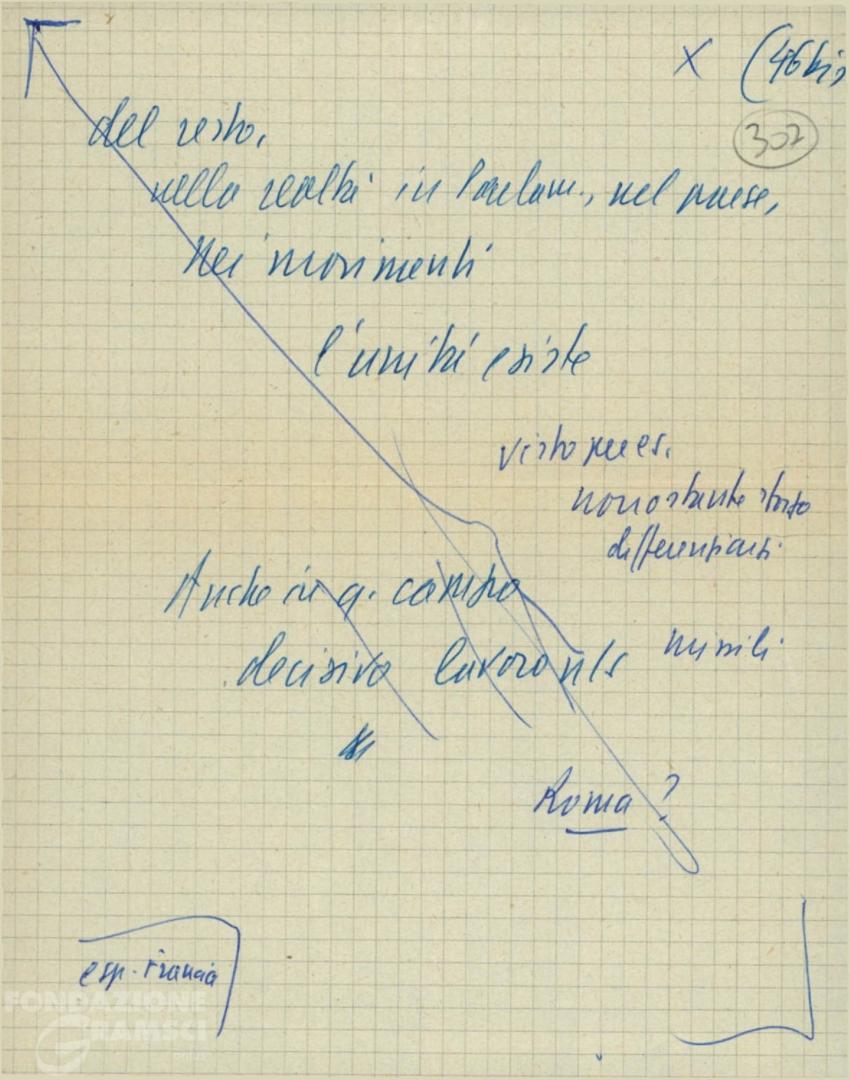 x (46 bis
302
del resto,
nella realtà in Parlam., nel paese,
nei movimenti
l'unità esiste
visto
nonostante sforzo
differenziarsi
Anche in q. campo
decisivo lavoro
missili
Roma ?
esp. Francia
FONDAZIONE
GRAMSCI